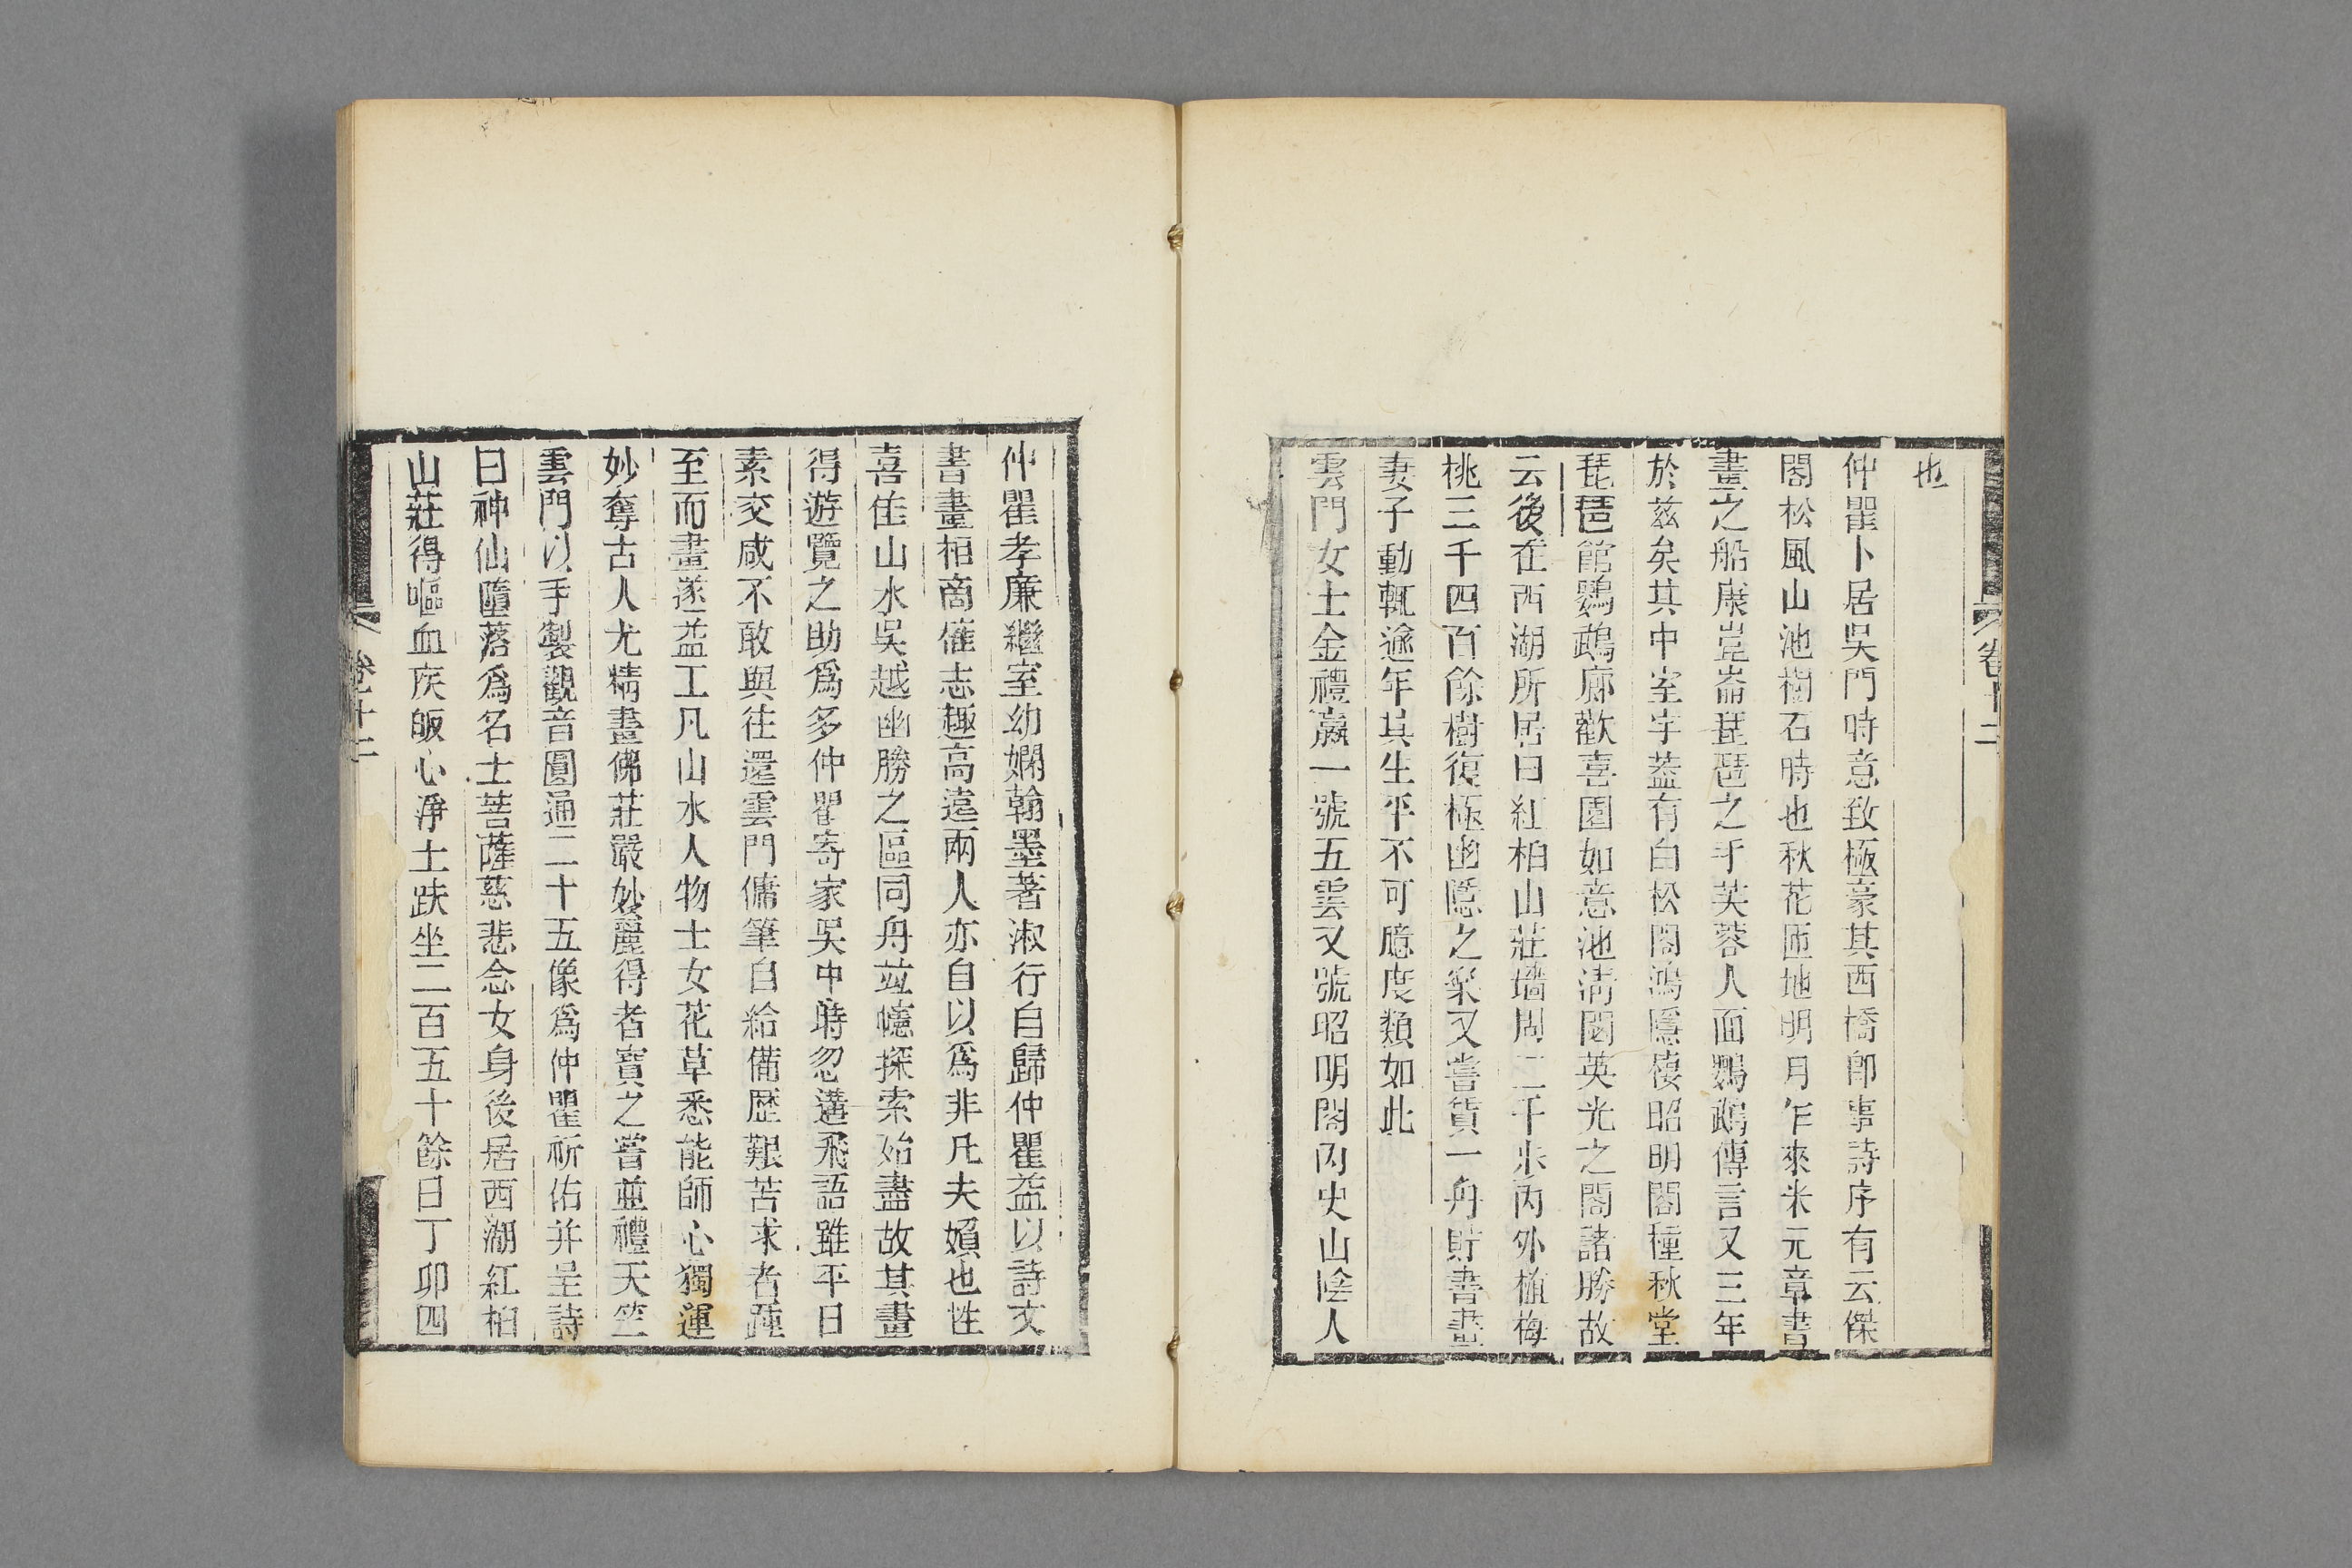 也
仲瞿卜居吳門時意致極豪其西橋即事詩序有云傑
閣松風山池樹石時也秋花匝地明月乍來米元章書
畫之船康崑崙琵琶之手芙蓉人面鸚鵡傳言又三年
於茲矣其中室宇葢有白松閣鴻隱棲昭明閣種秋堂
琵琶館鸚鵡廊歡喜園如意池淸閟英光之閣諸勝故
云後在西湖所居曰紅柏山莊墻周二千步內外植梅
桃三千四百餘樹復極幽隱之樂又嘗貨一舟貯書畫
妻子動輒逾年其生平不可臆度類如此
雲門女士金禮嬴一號五雲又號昭明閣內史山陰人
仲瞿孝廉繼室幼嫻翰墨著淑行自歸仲瞿益以詩文
書畫相商傕志趣高遠兩人亦自以爲非凡夫嬪也性
喜佳山水吳越幽勝之區同舟竝幰探索殆盡故其畫
得遊覽之助爲多仲瞿寄家吳中時忽遘飛語雖平日
素交咸不敢與往還雲門傭筆自給備歷艱苦求者踵
至而畫遂益工凡山水人物士女花草悉能師心獨運
妙奪古人尤精畫佛莊嚴妙麗得者寶之嘗並禮天竺
雲門以手製觀音圓通二十五像爲仲瞿祈佑并呈詩
曰神仙墮落爲名士菩薩慈悲念女身後居西湖紅柏
山莊得嘔血疾皈心淨土趺坐二百五十餘日丁卯四
卷十二
卷十二